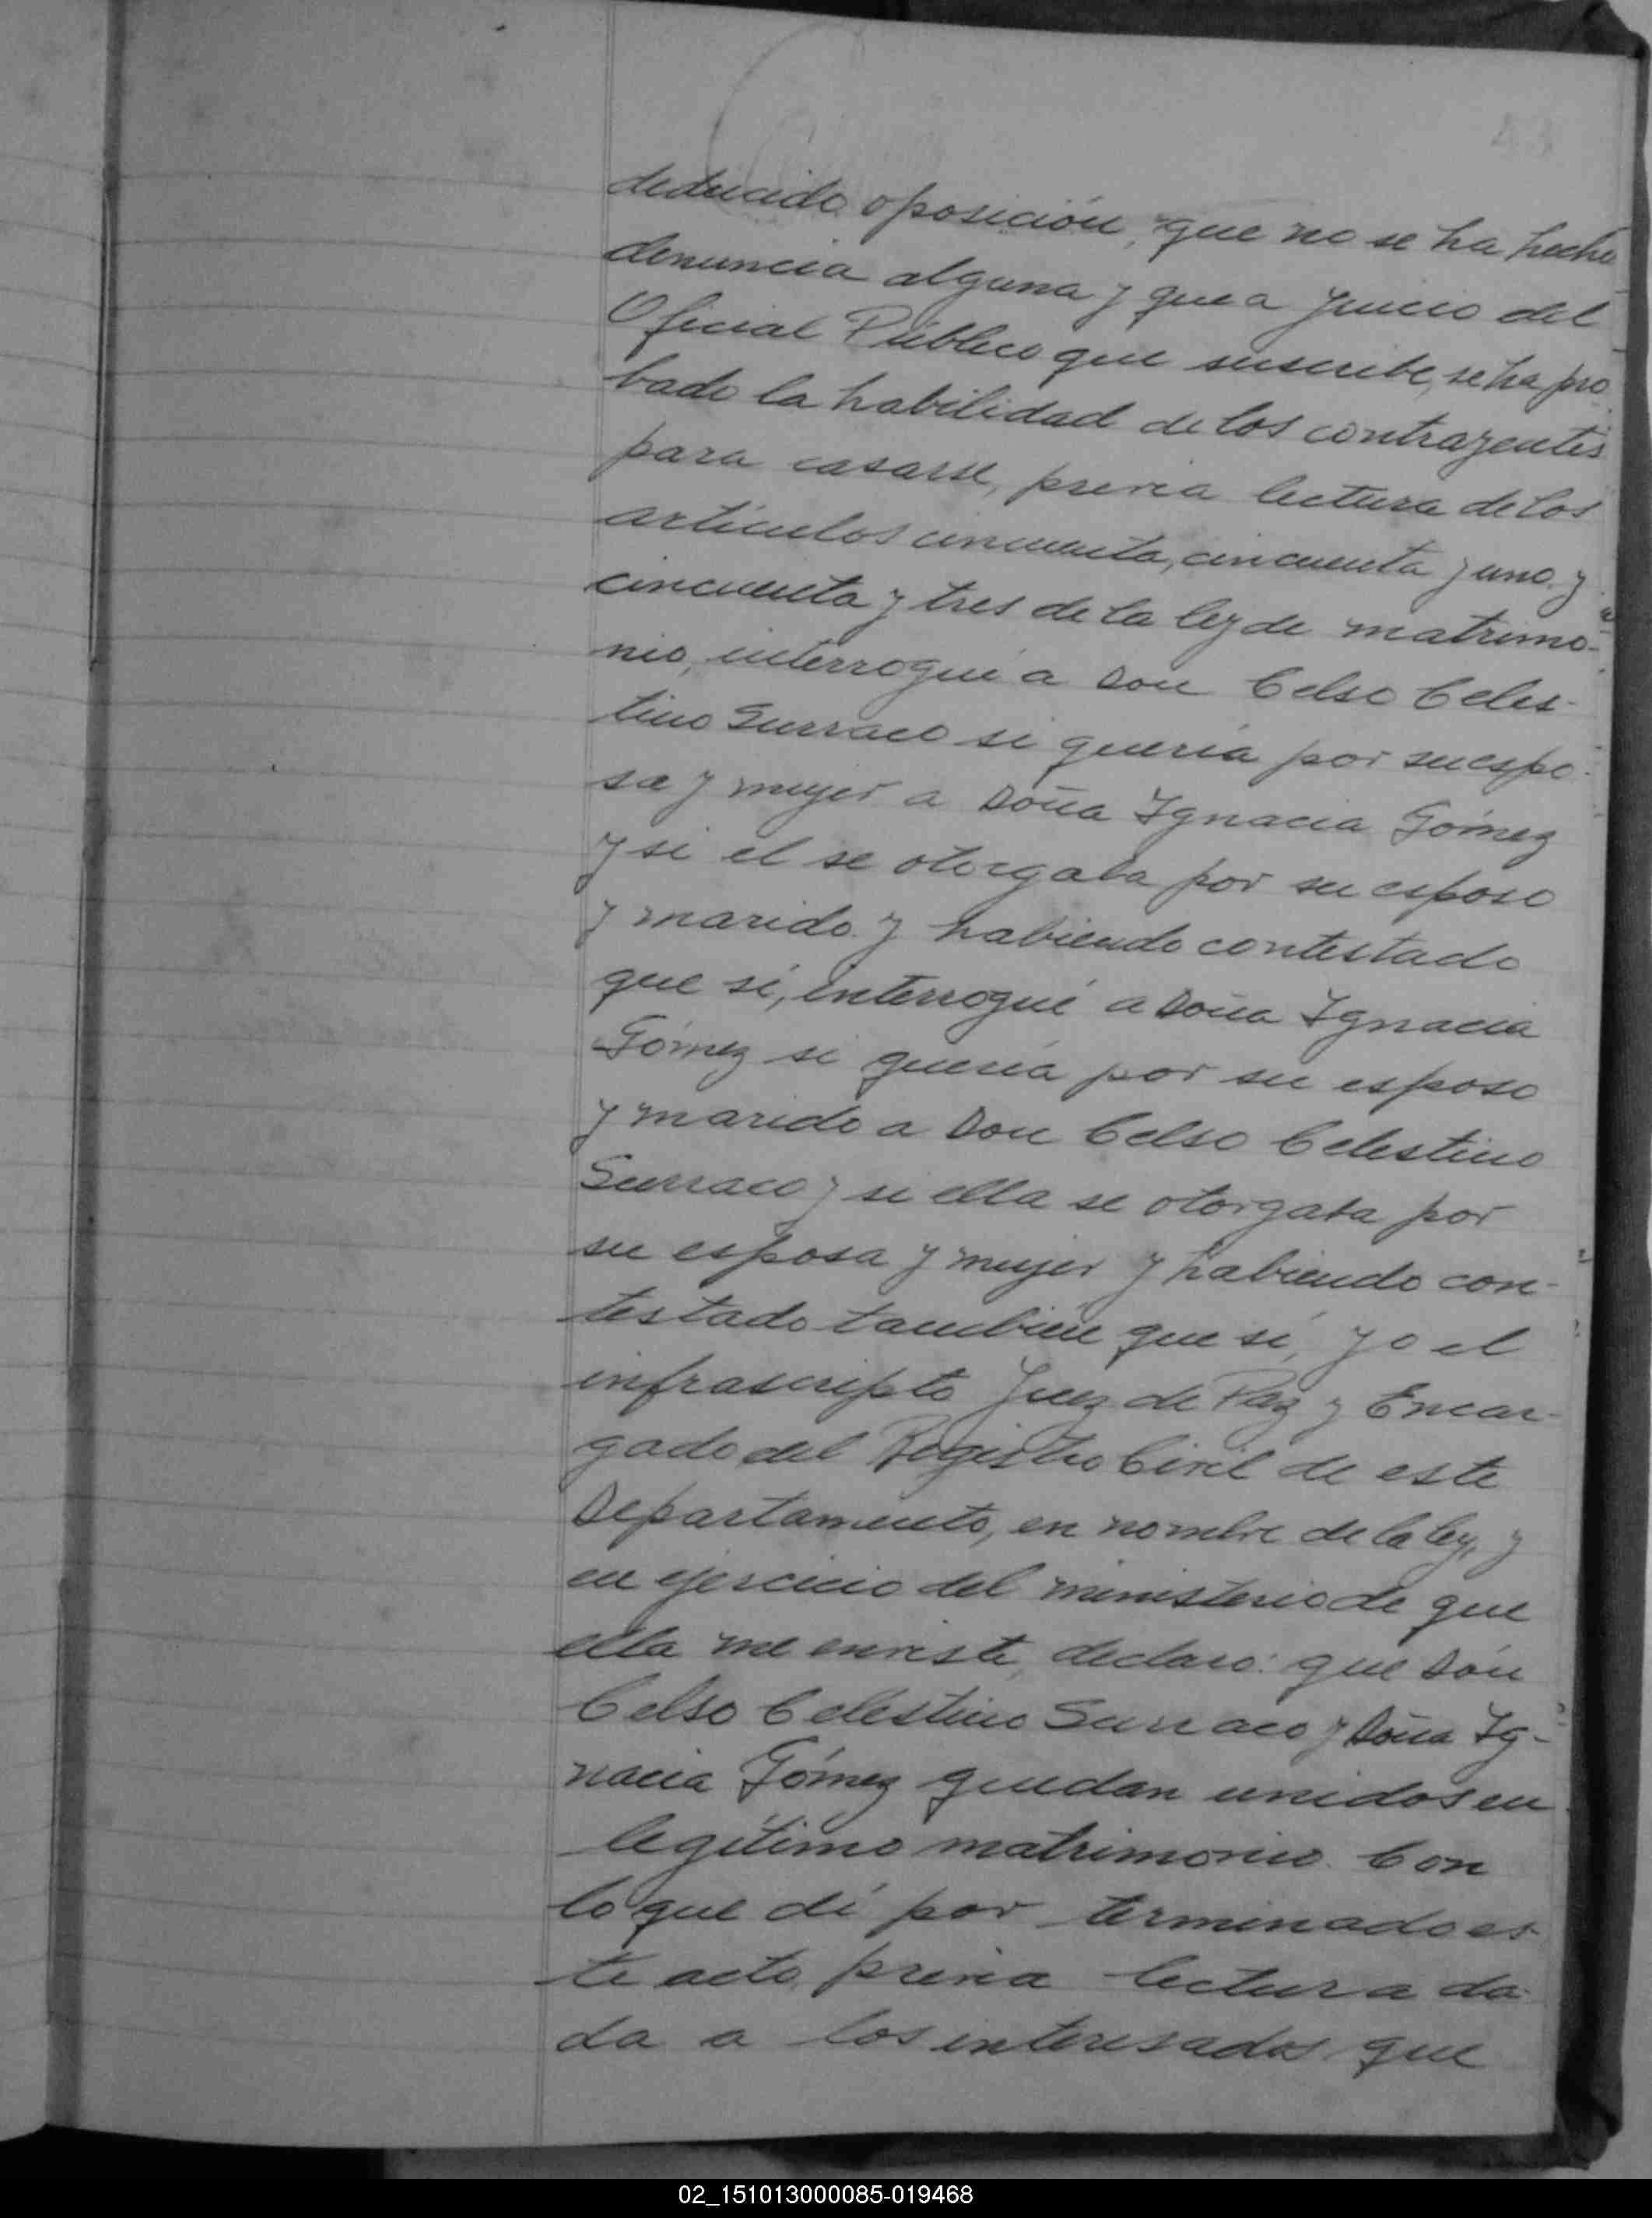 43
deducido oposición, que no se ha hecho
denuncia alguna y que a juicio del
Oficial Público que suscribe, se ha pro
bado la habilidad de los contrayentes
para casarse, previa lectura de los
artículos cincuenta, cincuenta y uno y
cincuenta y tres de la ley de matrimo-
nio, interrogué a Don Celso Celes-
tino Surraco si quería por su espo-
sa y mujer a Doña Ignacia Gómez
y si el se otorgaba por su esposo
y marido y habiendo contestado
que sí, interrogué a Doña Ignacia
Gómez si quería por su esposo
y marido a Don Celso Celestino
Surraco y si ella se otorgaba por
su esposa y mujer y habiendo con-
testado también que sí, yo el
infrascripto Juez de Paz y Encar-
gado del Registro Civil de este
Departamento, en nombre de la ley, y
en ejercicio del ministerio de que
ella me enviste, declaro: que Don
Celso Celestino Surraco y Doña Ig-
nacia Gómez quedan unidos en
legítimo matrimonio. Con
lo que dí por terminado es-
te acto, previa lectura da-
da a los interesados que
02_151013000085-019468